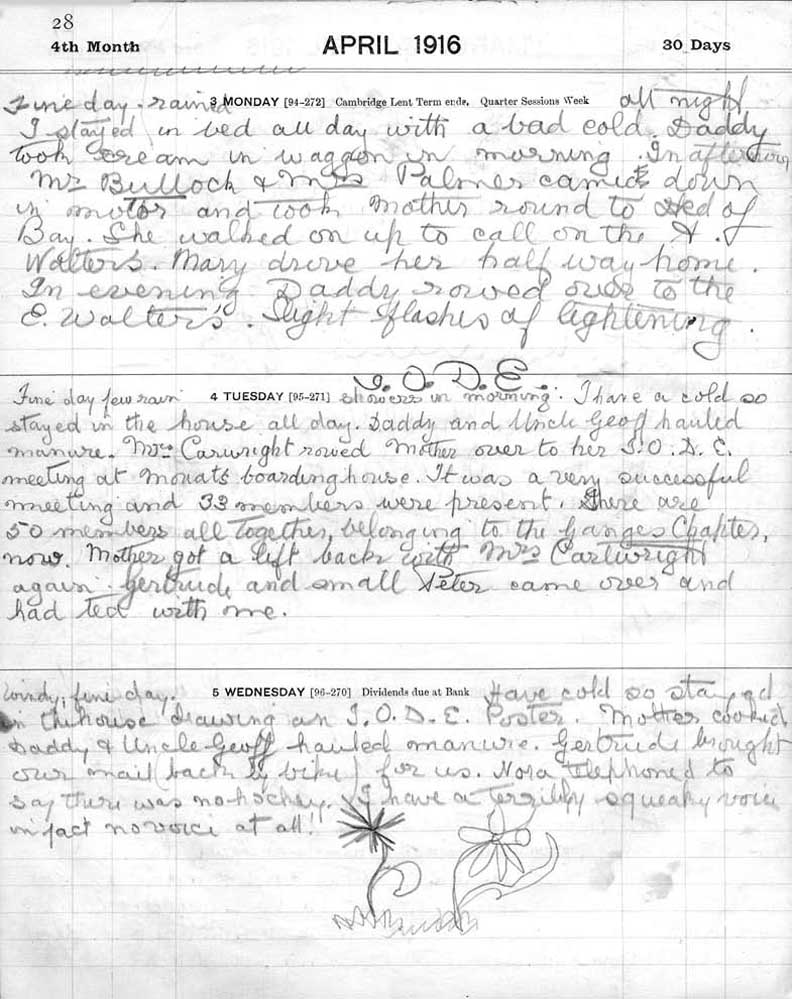 28
4th Month APRIL 1916 30 Days
3 MONDAY [94-272] Cambridge Lent Term ends. Quarter Sessions Week
Fine day. rained all night
I stayed in bed all day with a bad cold. Daddy
took cream in waggon in morning. In afternoon
Mr Bullock & Mrs Palmer came down
in motor and took Mother round to Hed of
Bay. She walked on up to call on the A. J
Walters. Mary drove her half way home.
In evening Daddy rowed over to the
E. Walter's. Slight flashes of lightening.
I. O. D. E.
4 TUESDAY [95-271]
Fine day few rain showers in morning. I have a cold so
stayed in the house all day. Daddy and Uncle Geoff hauled
manure. Mrs Carwright rowed Mother over to her I.O.D.E.
meeting at Mouats boardinghouse. It was a very successful
meeting and 33 members were present. There are
50 members all together, belonging to the Ganges Chapter,
now. Mother got a lift back with Mrs Cartwright
again. Gertrude and small Peter came over and
had tea with me.
5 WEDNESDAY [96-270] Dividends due at Bank
Windy, fine day. Have cold so stayed
in the house drawing an I.O.D.E. Poster. Mother cooked
Daddy & Uncle Geoff hauled manure. Gertrude brought
our mail (back by bike) for us. Nora telephoned to
say there was no hockey. I have a terribly squeaky voice
in fact no voice at all!!